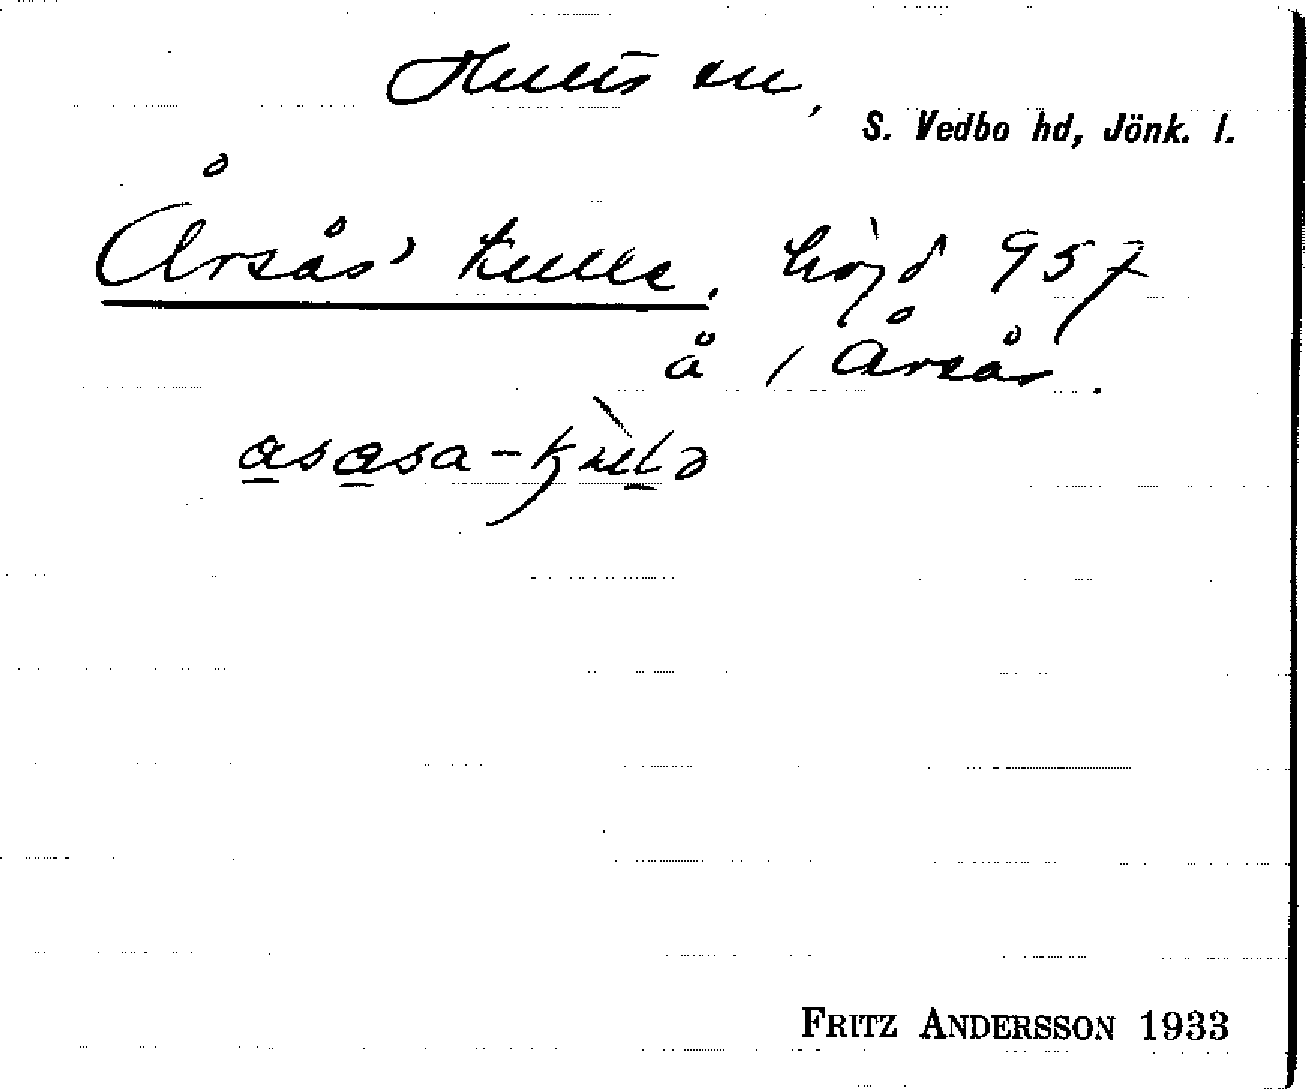 Hults sn,
S. Vedbo hd, Jönk. l.
Årsås' kulle, höjd 957
å / Årsås.
asasa-kùlə
FRITZ ANDERSSON 1933